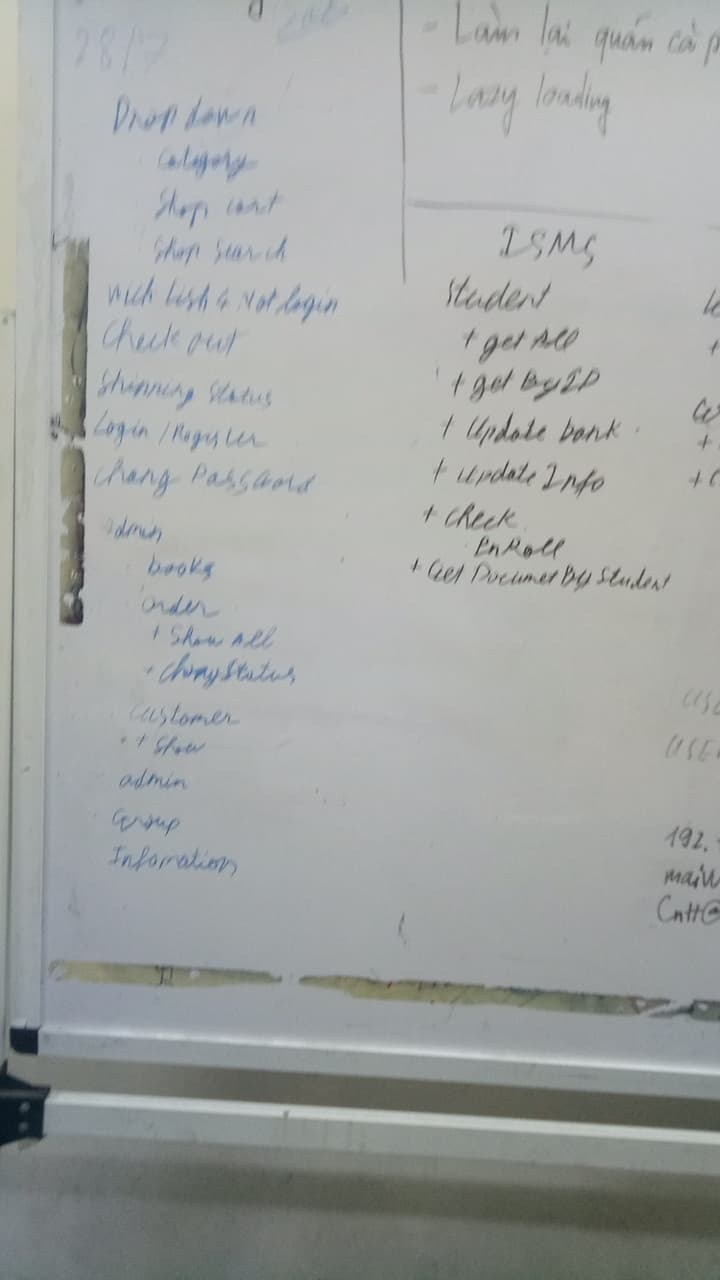 28/7
Drop down
Category
Shop cart
Shop Search
Wich List & Not login
Check out
Shipping Status
Login / Register
Chang Password
admin
books
order
+ Show All
+ ChangStatus
Customer
+ Show
admin
Group
Infomation
- Làm lại quán cà p
- Lazy loading
ISMS
Student
+ get All
+ get By ID
+ Update bank
+ Update Info
+ check
EnRoll
+ Get Documet By Student
192.
Cntt@